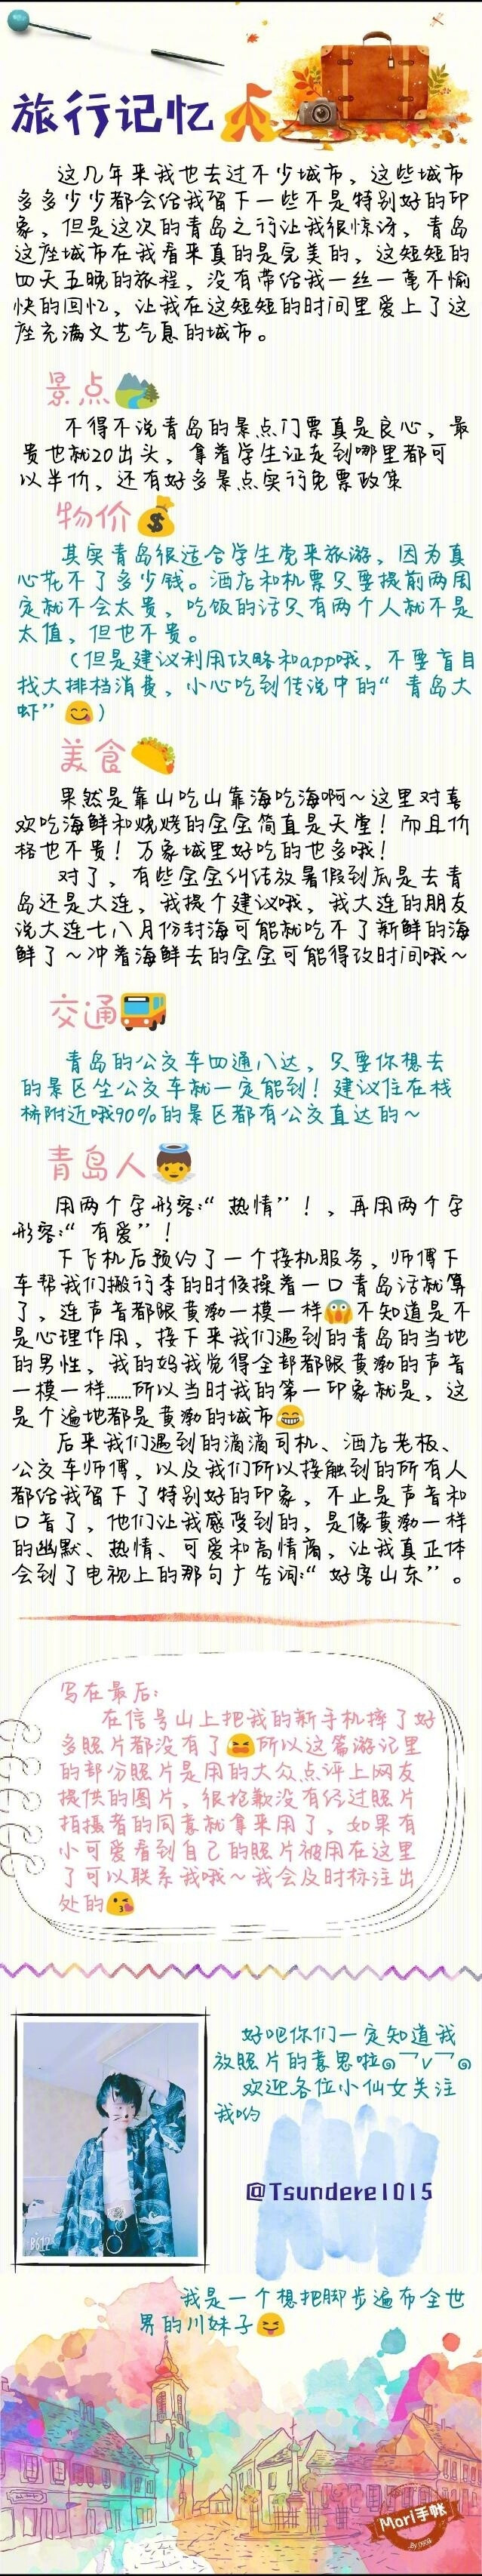 旅行记忆
这几年来我也去过不少城市，这些城市
多多少少都会给我留下一些不是特别好的印
象，但是这次的青岛之行让我很惊讶，青岛
这座城市在我看来真的是完美的，这短短的
四天五晚的旅程，没有带给我一丝一毫不愉
快的回忆，让我在这短短的时间里爱上了这
座充满文艺气息的城市。
景点
不得不说青岛的景点门票真是良心，最
贵也就20出头，拿着学生证走到哪里都可
以半价，还有好多景点实行免票政策
物价
其实青岛很适合学生党来旅游，因为真
心花不了多少钱。酒店和机票只要提前两周
定就不会太贵，吃饭的话只有两个人就不是
太值，但也不贵。
（但是建议利用攻略和app哦，不要盲目
找大排档消费，小心吃到传说中的“青岛大
虾”😋）
美食
果然是靠山吃山靠海吃海啊～这里对喜
欢吃海鲜和烧烤的宝宝简直是天堂！而且价
格也不贵！万象城里好吃的也多哦！
对了，有些宝宝纠结放暑假到底是去青
岛还是大连，我提个建议哦，我大连的朋友
说大连七八月份封海可能就吃不了新鲜的海
鲜了～冲着海鲜去的宝宝可能得改时间哦～
交通
青岛的公交车四通八达，只要你想去
的景区坐公交车就一定能到！建议住在栈
桥附近哦90%的景区都有公交直达的～
青岛人
用两个字形容：“热情”！，再用两个字
形容：“有爱”！
下飞机后预约了一个接机服务，师傅下
车帮我们搬行李的时候操着一口青岛话就算
了，连声音都跟黄渤一模一样😱不知道是不
是心理作用，接下来我们遇到的青岛的当地
的男性，我的妈我觉得全部都跟黄渤的声音
一模一样.......所以当时我的第一印象就是，这
是个遍地都是黄渤的城市😂
后来我们遇到的滴滴司机、酒店老板、
公交车师傅，以及我们所以接触到的所有人
都给我留下了特别好的印象，不止是声音和
口音了，他们让我感受到的，是像黄渤一样
的幽默、热情、可爱和高情商，让我真正体
会到了电视上的那句广告词：“好客山东”。
写在最后：
在信号山上把我的新手机摔了好
多照片都没有了😫所以这篇游记里
的部分照片是用的大众点评上网友
提供的图片，很抱歉没有经过照片
拍摄者的同意就拿来用了，如果有
小可爱看到自己的照片被用在这里
了可以联系我哦～我会及时标注出
处的😘
好吧你们一定知道我
放照片的意思啦๑乛v乛๑
欢迎各位小仙女关注
我哟
@Tsundere1015
B612
我是一个想把脚步遍布全世
界的川妹子😝
Mori手帐